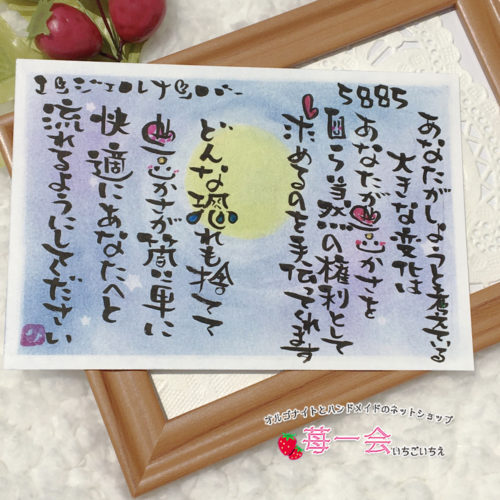 エンジェルナンバー
5885
あなたがしようと考えている
大きな変化は
あなたが豊かさを
自ら当然の権利として
求めるのを手伝ってくれます
どんな恐れも捨てて
豊かさが簡単に
快適にあなたへと
流れるようにしてください
オルゴナイトとハンドメイドのネットショップ
苺一会 いちごいちえ